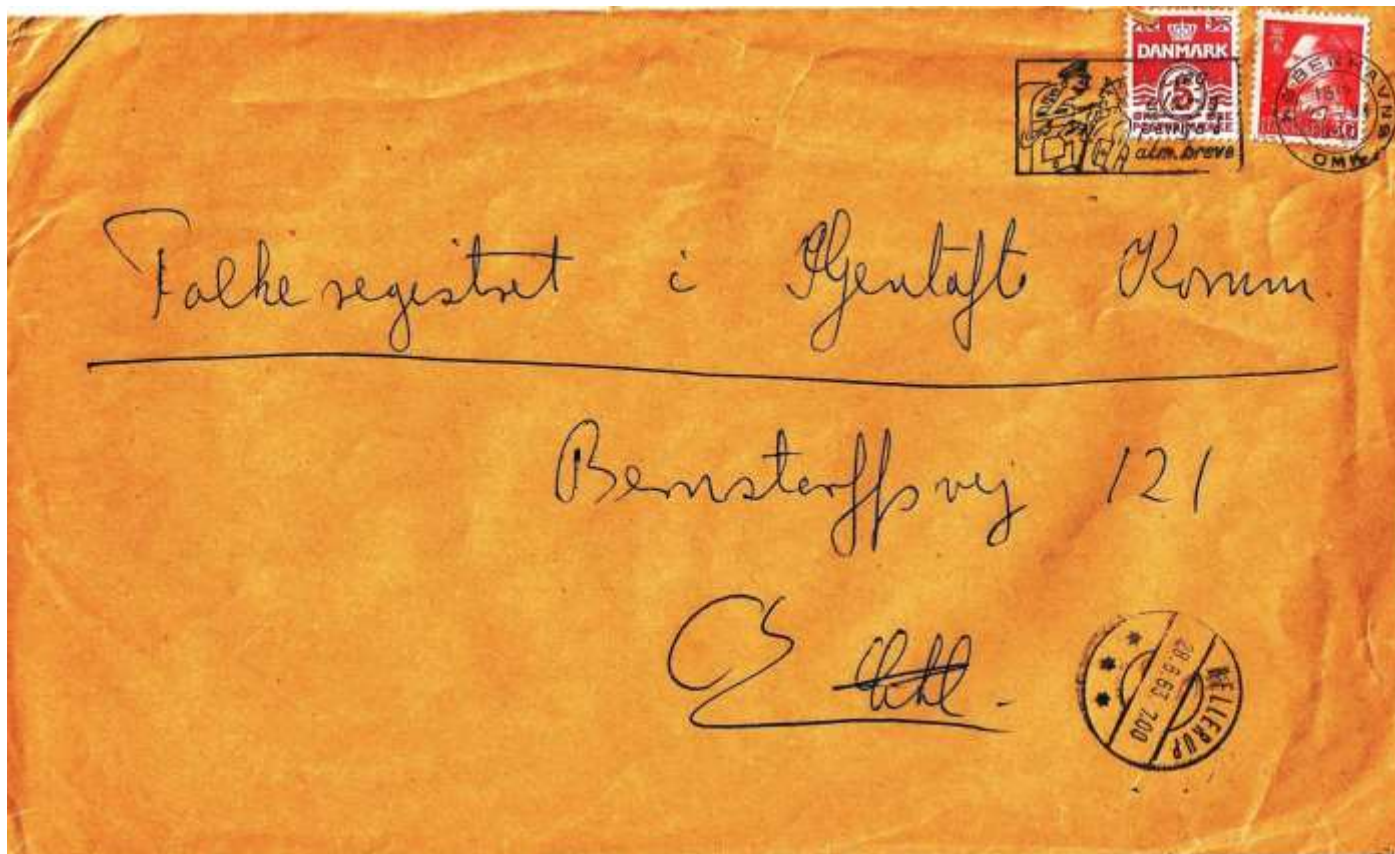 DANMARK
5
alm. breve
KØBENHAVNS
OMK.
Folkeregistret i Gjentofte Komm.
Bernstorffsvej 121
28.6.63. 7.00
HELLERUP